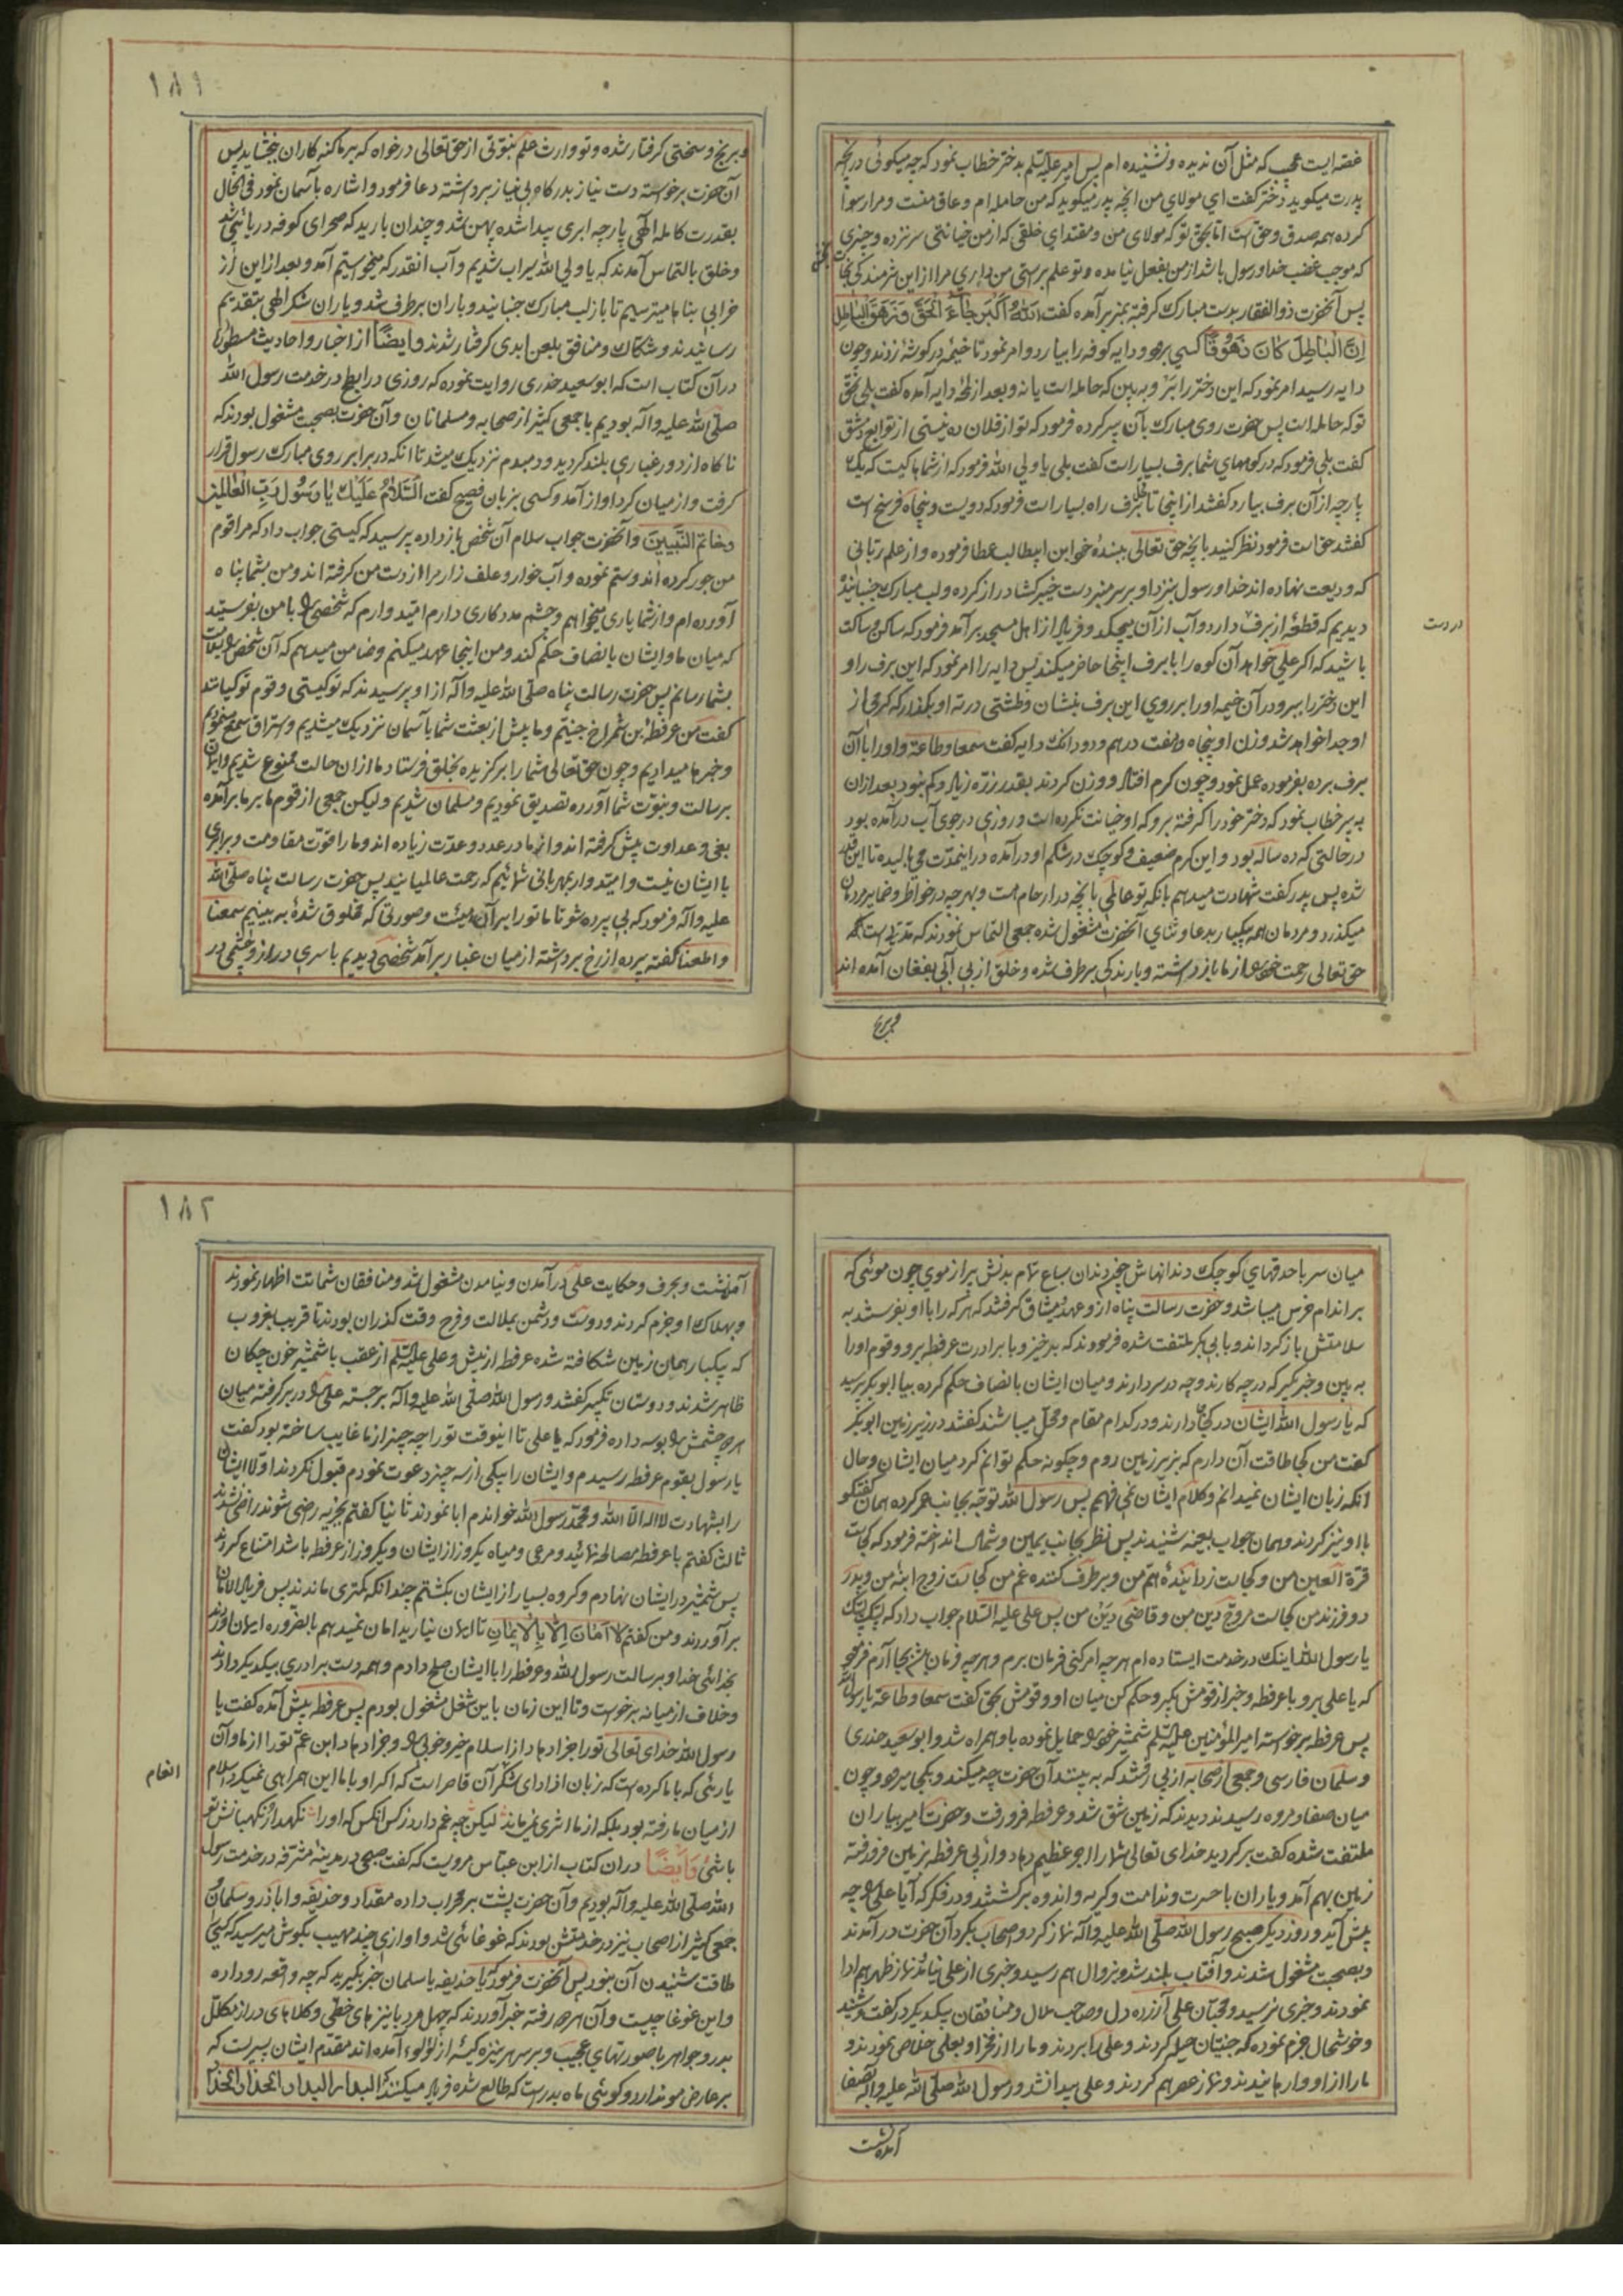 غضه ایست عجب که مثل آن ندیده و نشنیده ام پس امیر علیه السلم بدختر خطاب نمود که چه میگوئی در آنچه
پدرت میگوید دختر گفت ای مولای من آنچه پدر میگوید که من حامله ام و عاق منست و مرا رسوا
کرده همه صدق و حق است اما بحق تو که مولای من و مقتدای خلقی که از من خیانتی سر نزده و چیزی
که موجب غضب خدا و رسول باشد از من بفعل نیامده و تو علم برستی من داری مرا از این شرمندگی نجات
پس آنحضرت ذوالفقار بدست مبارک گرفته بمنبر برآمده گفت الله اکبر جاء الحق و زهق الباطل
ان الباطل کان زهوقا کسی برود و دایه کوفه را بیارد و امر نمود تا خیمه در گوشه زدند و چون
دایه رسید امر نمود که این دختر را ببر و به بین که حامله است یا نه و بعد از لحظه دایه آمده گفت بلی بحق
تو که حامله است پس حضرت روی مبارک بآن پیر کرده فرمود که تو از فلان ده نیستی از توابع دمشق
گفت بلی فرمود که در کوههای شما برف بسیار است گفت بلی یا ولی الله فرمود که از شما ها کیست که یک
پارچه از آن برف بیارد گفتند از اینجا تا محل برف راه بسیار است فرمود که دویست و پنجاه فرسخ است
گفتند حق است فرمود نظر کنید بانچه حق تعالی ببنده خو ابن ابیطالب عطا فرموده و از علم ربانی
که ودیعت نهاده اند خدا و رسول بنزد او و بر سر منبر دست خیبر گشا دراز کرده و لب مبارک جنبانیده
دیدیم که قطعه از برف دارد و آب از آن میچکد و فریاد از اهل مسجد برآمد فرمود که ساکن و ساکت
در دست
باشید که اگر علی خواهد آن کوه را با برف اینجا حاضر میکند پس دایه را امر نمود که این برف را و
این دختر را ببر و در آن خیمه او را بر روی این برف بنشان و طشتی در ته او بگذار که کرمی از
او جدا خواهد شد وزن او پنجاه و هفت درهم و دو دانک دایه گفت سمعا و طاعة و او را با آن
برف برده بفرموده عمل نمود و چون کرم افتاد و وزن کردند بقدر ذره زیاد و کم نبود بعد ازان
به پیر خطاب نمود که دختر خود را گرفته برو که او خیانت نکرده است و روزی در جوی آب درآمده بود
در حالتی که ده ساله بود و این کرم ضعیف و کوچک در شکم او درآمده در اینمدت می بالیده تا این قدر
شده پس پدر گفت شهادت میدهم بانکه تو عالمی بانچه در ارحام است و بهر چه در خواطر و ضمایر مردمان
میگذرد و مردمان همه یکبار بدعا و ثنای آنحضرت مشغول شده جمعی التماس نمودند که مدتی است که
حق تعالی رحمت خود را از ما بازداشته و بارندگی برطرف شده و خلق از بی آبی بفغان آمده اند
۱۸۱
و برنج و سختی گرفتار شده و تو وارث علم نبوتی از حق تعالی درخواه که بر ما گنه کاران ببخشاید پس
آن حضرت برخواسته دست نیاز بدرگاه بی نیاز برداشته دعا فرمود و اشاره بآسمان نمود فی الحال
بقدرت کامله الهی پارچه ابری پیدا شده پهن شد و چندان بارید که صحرای کوفه دریائی شد
و خلق بالتماس آمدند که یا ولی الله سیراب شدیم و آب انقدر که میخواستیم آمد و بعد از این از
خرابی بناها میترسیم تا باز لب مبارک جنبانید و باران برطرف شد و یاران شکر الهی بتقدیم
رسانیدند و شکاک و منافق بلعن ابدی گرفتار شدند و ایضاً از اخبار و احادیث مسطوره
در آن کتاب است که ابوسعید خدری روایت نموده که روزی در ابطح در خدمت رسول الله
صلی الله علیه و آله بودیم با جمعی کثیر از صحابه و مسلمانان و آن حضرت بصحبت مشغول بودند که
ناکاه از دور غباری بلند گردید و دمبدم نزدیک میشد تا انکه در برابر روی مبارک رسول قرار
گرفت و از میان گرد اواز آمد و کسی بزبان فصیح گفت السلام علیک یا رسول رب العالمین
و خاتم النبیین و آنحضرت جواب سلام آن شخص باز داده پرسید که کیستی جواب داد که مرا قوم
من جور کرده اند و ستم نموده و آب خوار و علف زار مرا از دست من گرفته اند و من بشما پناه
آورده ام و از شما یاری میخواهم و چشم مددکاری دارم امیدوارم که شخصی را با من بفرستید
که میان ما و ایشان بانصاف حکم کند و من اینجا عهد میکنم و ضامن میدهم که آن شخص را بسلامت
بشما رسانم پس حضرت رسالت پناه صلی الله علیه و آله از او پرسیدند که تو کیستی و قوم تو کیانند
گفت من عرفطة بن شمراخ جنیم و ما پیش از بعثت شما باسمان نزدیک میشدیم و استراق سمع مینمودیم
و خبرها میدادیم و چون حق تعالی شما را برگزیده بخلق فرستاد ما ازان حالت ممنوع شدیم و ایمان
برسالت و نبوت شما آورده تصدیق نمودیم و مسلمان شدیم و لیکن جمعی از قوم ما بر ما برآمده
بغی و عداوت پیش گرفته اند و از ما در عدد و عدت زیاده اند و ما را قوت مقاومت و برابری
با ایشان نیست و امیدوار بمهربانی شمائیم که رحمت عالمیانید پس حضرت رسالت پناه صلی الله
علیه و آله فرمود که بی پرده شو تا ما تو را بر آن هیئت و صورتی که مخلوق شدهٔ به بینیم سمعنا
و اطعنا گفته پرده از رخ برداشته از میان غبار برآمد شخصی دیدیم با سری دراز و چشمی در
میان سر با حدقهای کوچک دندانهاش چون دندان سباع تمام بدنش پر از موی چون موئی که
بر اندام خرس میباشد و حضرت رسالت پناه از و عهد و میثاق گرفتند که هر که را با او بفرستد به
سلامتش باز گرداند و بابی بکر ملتفت شده فرمودند که برخیز و با برادرت عرفطه برو و قوم او را
به بین و خبر گیر که در چه کارند و چه در سر دارند و میان ایشان بانصاف حکم کرده بیا ابوبکر پرسید
که یا رسول الله ایشان در کجا جا دارند و در کدام مقام و محل میباشند گفتند در زیر زمین ابوبکر
گفت من کجا طاقت آن دارم که بزیر زمین روم و چگونه حکم توانم کرد میان ایشان و حال
انکه زبان ایشان نمیدانم و کلام ایشان نمی فهمم پس رسول الله توجه بجانب عمر کرده همان گفتگو
با او نیز کردند و همان جواب بعینه شنیدند پس نظر بجانب یمین و شمال انداخته فرمود که کجاست
قرة العین من و کجاست زداینده هم من و برطرف کننده غم من کجاست زوج ابنه من و پدر
دو فرزند من کجاست مروج دین من و قاضی دین من پس علی علیه السلام جواب داد که لبیک لبیک
یا رسول الله اینک در خدمت ایستاده ام هر چه امر کنی فرمان برم و هر چه فرمان دهی بجا آرم فرمود
که یا علی برو با عرفطه و خبر از قومش بگیر و حکم کن میان او و قومش بحق گفت سمعا و طاعة یا رسول الله
پس عرفطه برخواسته امیرالمؤمنین علیه السلم شمشیر خود را حمایل نموده با او همراه شد و ابوسعید خدری
و سلمان فارسی و جمعی از صحابه از پی رفتند که به بینند آن حضرت چه میکند و بکجا میرود و چون
میان صفا و مروه رسیدند دیدند که زمین شق شد و عرفطه فرو رفت و حضرت امیر بیاران
ملتفت شده گفت برگردید خدای تعالی شما را اجر عظیم دهاد و از پی عرفطه بزمین فرو رفته
زمین بهم آمد و یاران با حسرت و ندامت و گریه و اندوه برگشتند و در فکر که آیا علی را چه
پیش آید و روز دیگر صبح رسول الله صلی الله علیه و آله نماز کرد و اصحاب بگرد آن حضرت درآمدند
و بصحبت مشغول شدند و آفتاب بلند شد و زوال هم رسید و خبری از علی نیامد نماز ظهر هم ادا
نمودند و خبری نرسید و محبان علی آزرده دل و صاحب ملال و منافقان بیکدیگر در گفت و شنید
و خوشحال جزم نموده که جنیان حیله کردند و علی را بردند و ما را از فخر او بعلی خلاصی نمودند و
ما را از او وارهانیدند و نماز عصر هم کردند و علی پیدا نشد و رسول الله صلی الله علیه و آله بصفا
آمده نشست
۱۸۲
آمد نشست و بحرف و حکایت علی درآمدن و نیامدن مشغول شد و منافقان شماتت اظهار نمودند
و بهلاک او جزم کردند و دوست و دشمن بملالت و فرح وقت گذران بودند تا قریب بغروب
که یکبار همان زمین شکافته شده عرفطه از پیش و علی علیه السلم از عقب با شمشیر خون چکان
ظاهر شدند و دوستان تکبیر گفتند و رسول الله صلی الله علیه و آله برجسته علی را در بر گرفته میان
هر دو چشمش را بوسه داده فرمود که یا علی تا اینوقت تو را چه چیز از ما غایب ساخته بود گفت
یا رسول بقوم عرفطه رسیدم و ایشان را بیکی از سه چیز دعوت نمودم قبول نکردند اولا ایشان
را بشهادت لا اله الا الله و محمد رسول الله خواندم ابا نمودند ثانیا گفتم بجزیه راضی شوند راضی نشدند
ثالث گفتم با عرفطه مصالحه نمائید و مرعی و میاه یکروز از ایشان و یکروز از عرفطه باشد امتناع کردند
پس شمشیر در ایشان نهادم و گروه بسیار از ایشان بکشتم چندانکه کمتری ماندند پس فریاد الامان
برآوردند و من گفتم لا امان الا بالایمان تا ایمان نیارید امان نمیدهم بالضروره ایمان آوردند
بخدائی خدا و برسالت رسول الله و عرفطه را با ایشان صلح دادم و همه دست برادری بیکدیگر دادند
و خلاف از میانه برخواست و تا این زمان باین شغل مشغول بودم پس عرفطه پیش آمده گفت یا
رسول الله خدای تعالی تو را جزا دهاد از اسلام خیر و خوبی را و جزا دهاد ابن عم تو را از ما و آن
یاریئی که با ما کرده است که زبان از ادای شکر آن قاصر است که اگر او با ما این همراهی نمیکرد اسلام
انعام
از میان ما رفته بود بلکه از ما اثری نمی ماند لیکن چه غم دارد ز کس آنکس که او را نگهدار و نگهبانش تو
باشی و ایضاً در ان کتاب از ابن عباس مرویست که گفت صبحی در مدینه مشرفه در خدمت رسول
الله صلی الله علیه و آله بودیم و آن حضرت پشت بر محراب داده مقداد و حذیفه و اباذر و سلمان
جمعی کثیر از اصحاب نیز در خدمتش بودند که غوغائی شد و اوازی چند مهیب بگوش میرسید که کسی را
طاقت شنیدن آن نبود پس آنحضرت فرمود که با حذیفه یا سلمان خبر بگیرید که چه واقعه رو داده
و این غوغا چیست و آن هر دو رفته خبر آوردند که چهل مرد با نیزهای خطی و کلاهای دراز مکلل
بدر و جواهر با صورتهای عجیب و بر سر هر نیزه کیهٔ از لؤلوء آمده اند مقدم ایشان پسریست که
بر عارض مو ندارد و گوئی ماه بدر است که طالع شده فریاد میکند که البدار البدار الحذار الحذار